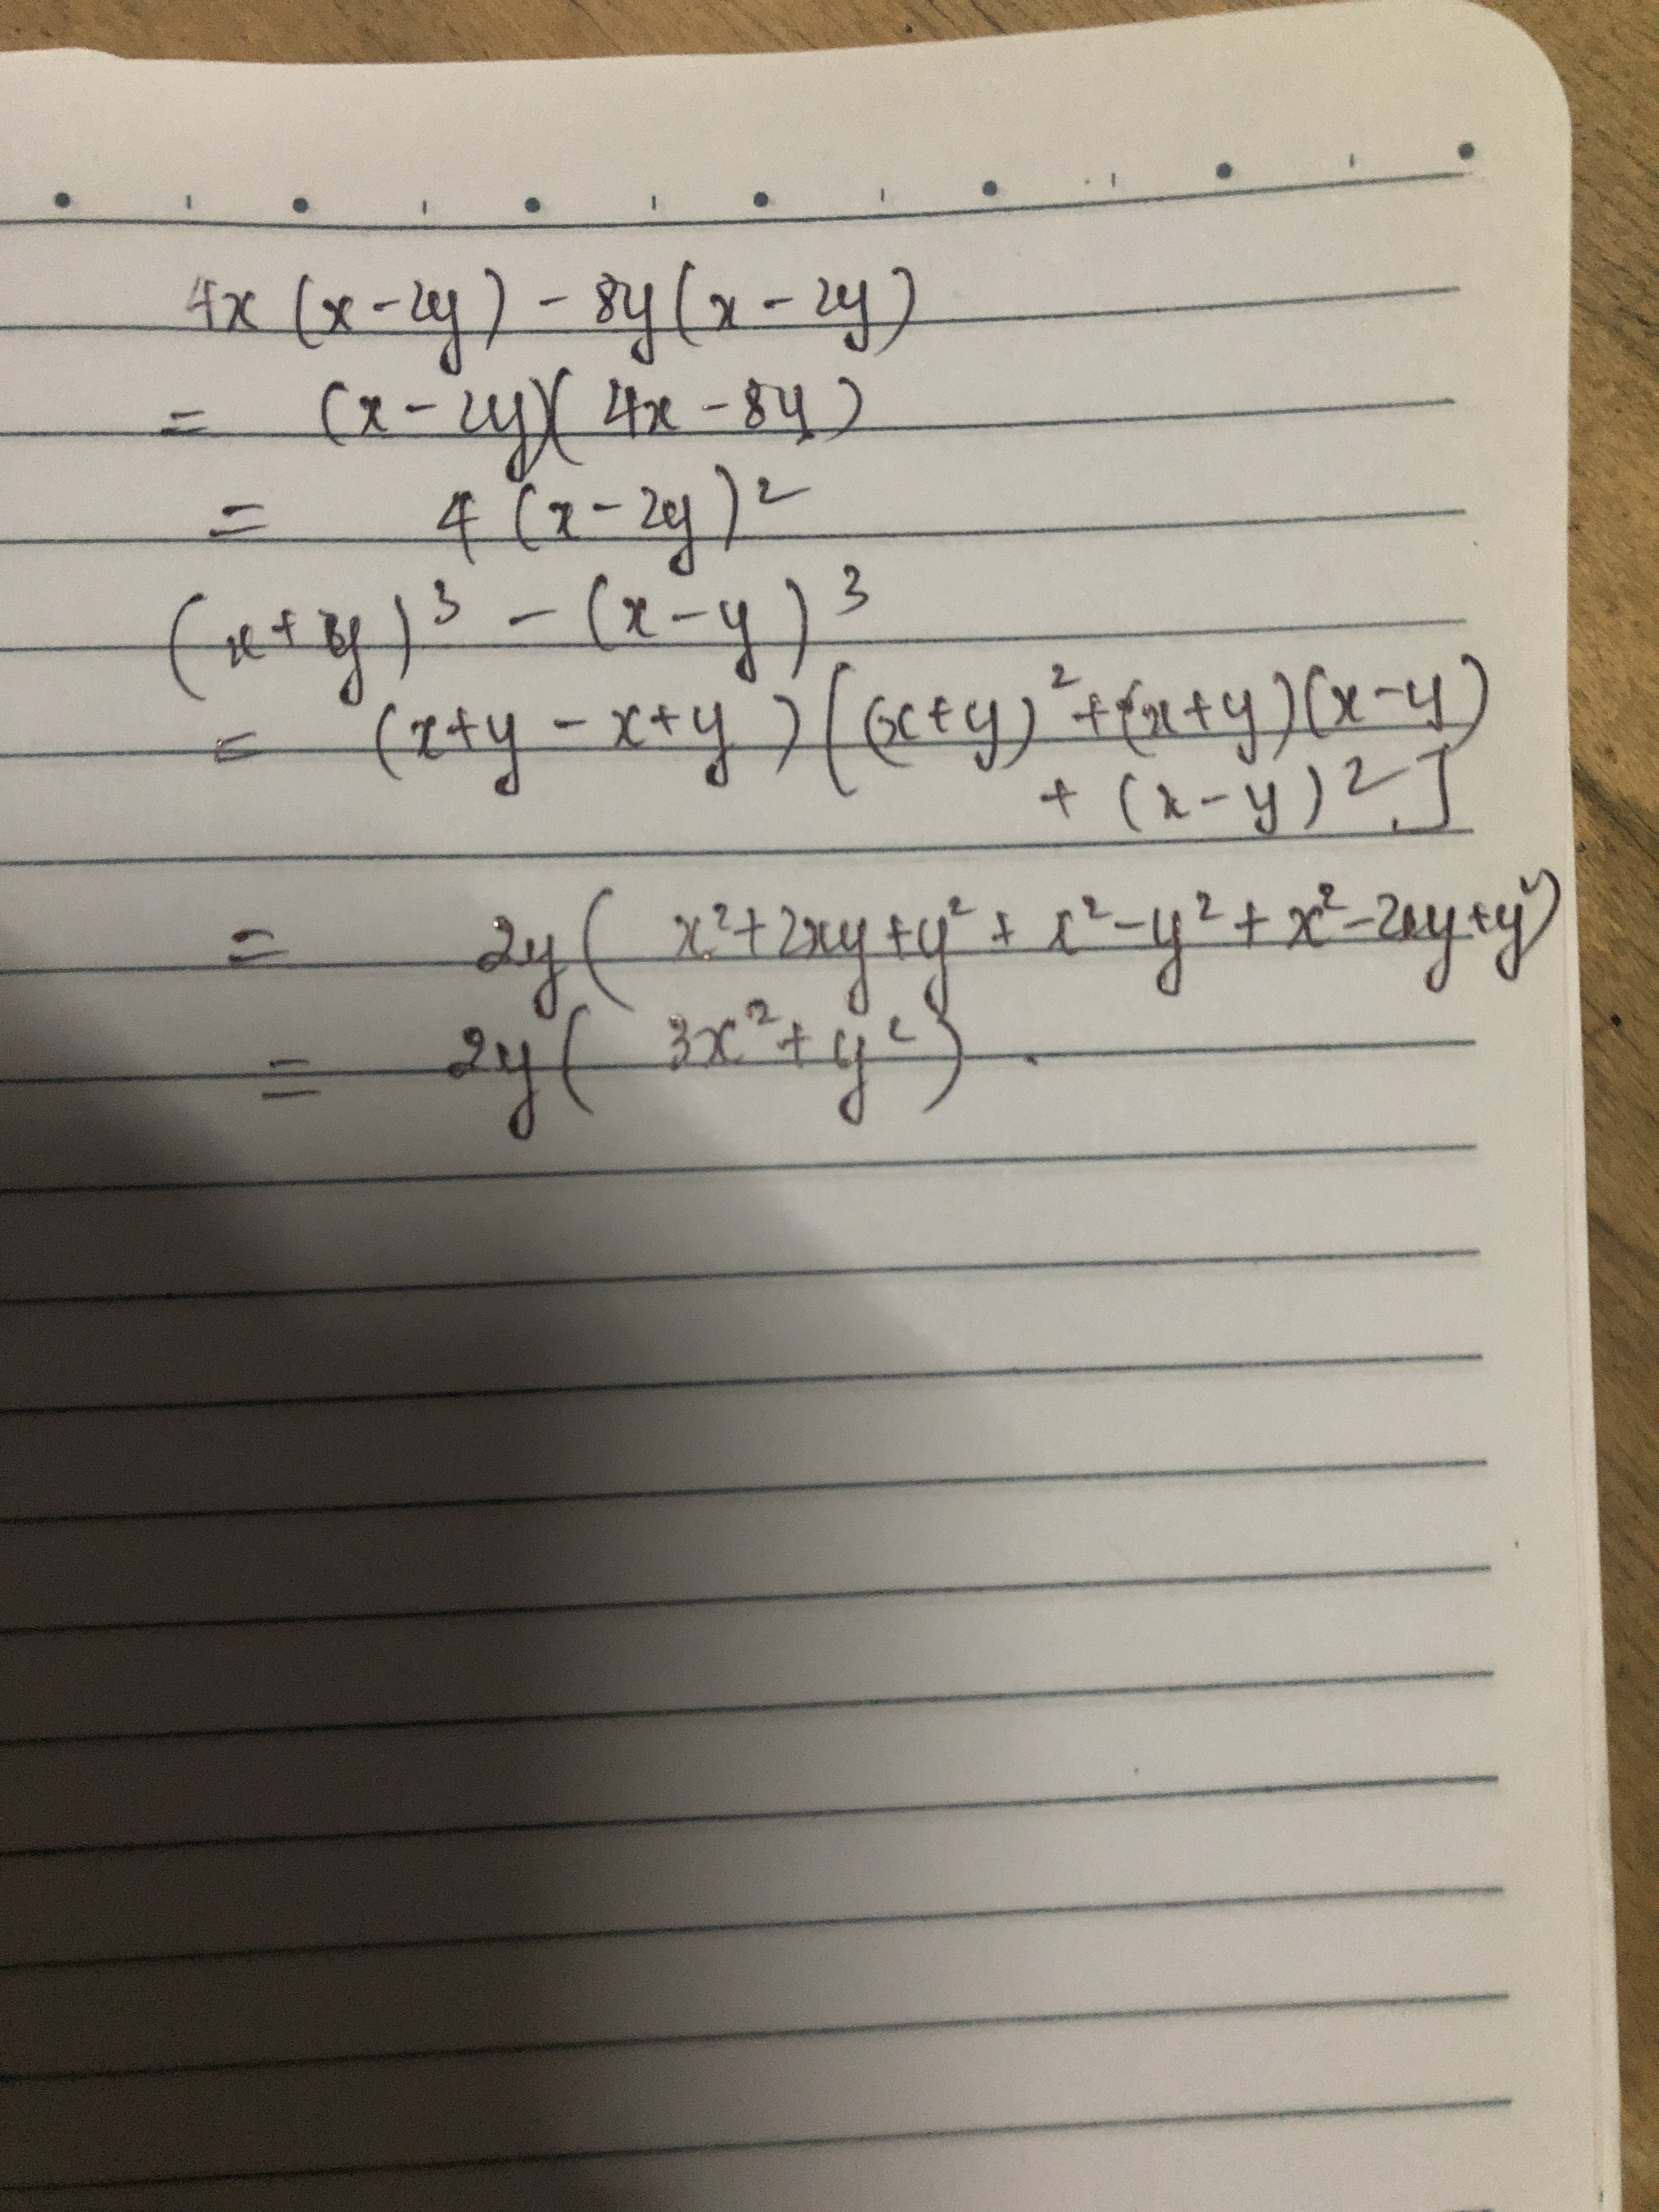 4x (x-2y) - 8y(x-2y)
= (x-2y)(4x-8y)
= 4(x-2y)²
(x+y)³ - (x-y)³
= (x+y-x+y)[(x+y)²+(x+y)(x-y)
+ (x-y)²]
= 2y(x²+2xy+y²+x²-y²+x²-2xy+y²)
= 2y(3x²+y²).